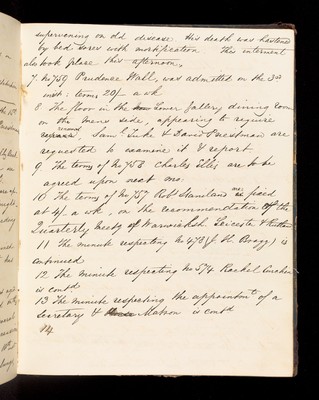 supervening on old disease. His death was hastened
by bed sores with mortification. His interment
also took place this afternoon.
7. No 759 Prudence Wall, was admitted on the 3rd
inst: terms 20/- a wk
8 The floor in the Lower Gallery, dining room
on the mens side, appearing to require
Saml. Tuke & David Priestman are
requested to examine it & report
9 The terms of No 758 Charles Elles are to be
agreed upon next mo.
10 The terms of No 757 Robt Staniland were fixed
at 4/- a wk, on the recommendation of the
Quarterly Meetg of Warwicksh. Leicester & Rutland
11 The minute respecting No 478 (J. H. Bragg) is
continued
12 The minute respecting No 574 Rachel
is contd
13 The minute respecting the appointmt. of a
Secretary & Matron is contd
14.